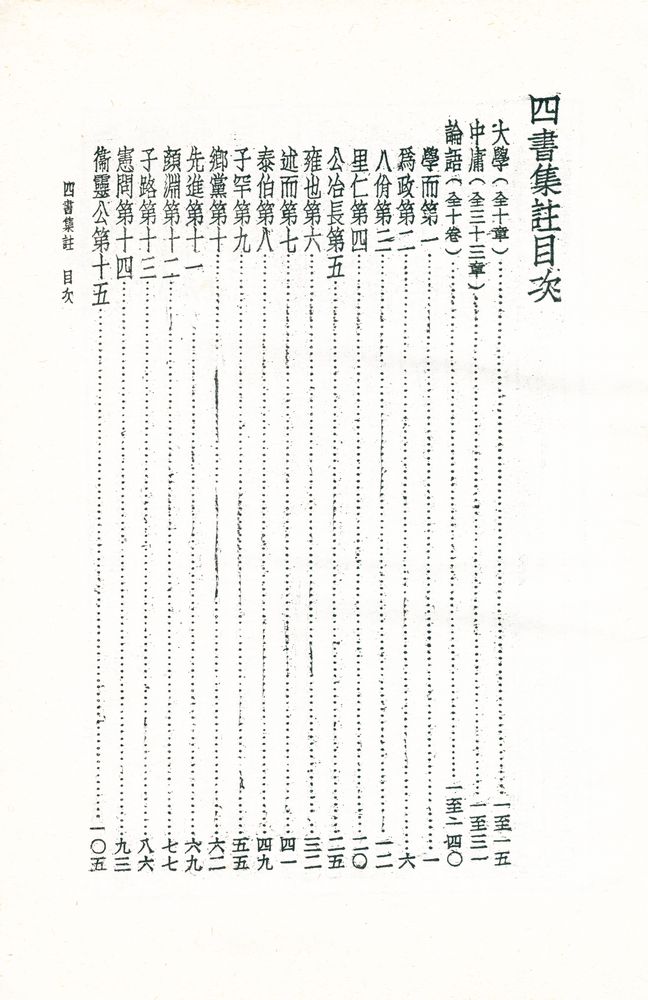 四書集註目次
大學(全十章)…一至一五
中庸(全三十三章)…一至三一
論語(全十卷)…一至一四〇
學而第一…一
爲政第二…六
八佾第三…一二
里仁第四…二〇
公冶長第五…二五
雍也第六…三二
述而第七…四一
泰伯第八…四九
子罕第九…五五
鄉黨第十…六二
先進第十一…六九
顏淵第十二…七七
子路第十三…八六
憲問第十四…九三
衞靈公第十五…一〇五
四書集註 目次